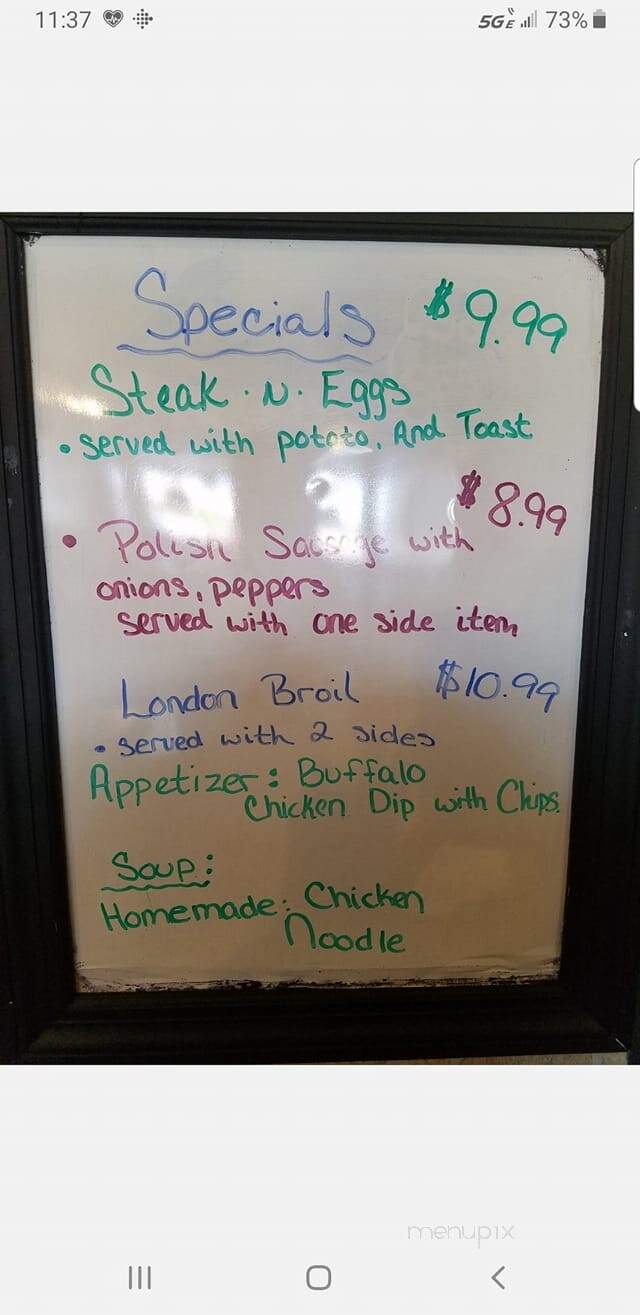 11:37
5GE 73%
Specials $9.99
Steak · N · Eggs
• served with potato, And Toast
$8.99
• Polish Sausage with
onions, peppers
served with one side item
London Broil $10.99
• served with 2 sides
Appetizer: Buffalo
Chicken Dip with Chips.
Soup:
Homemade: Chicken
Noodle
menupix